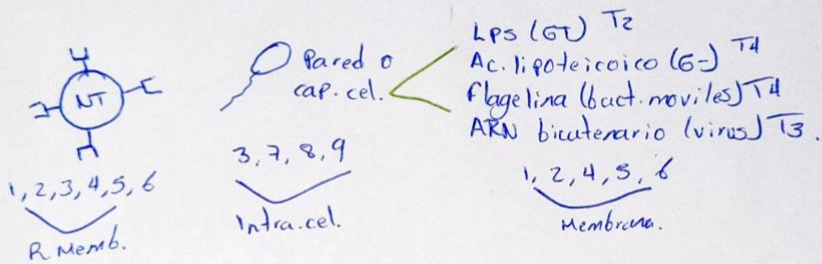 NT
1, 2, 3, 4, 5, 6
R. Memb.
Pared o
cap. cel.
3, 7, 8, 9
Intra.cel.
LPS (GT) T2
Ac. lipoteicoico (G-) T4
flagelina (bact. moviles) T4
ARN bicatenario (virus) T3.
1, 2, 4, 5, 6
Membrana.